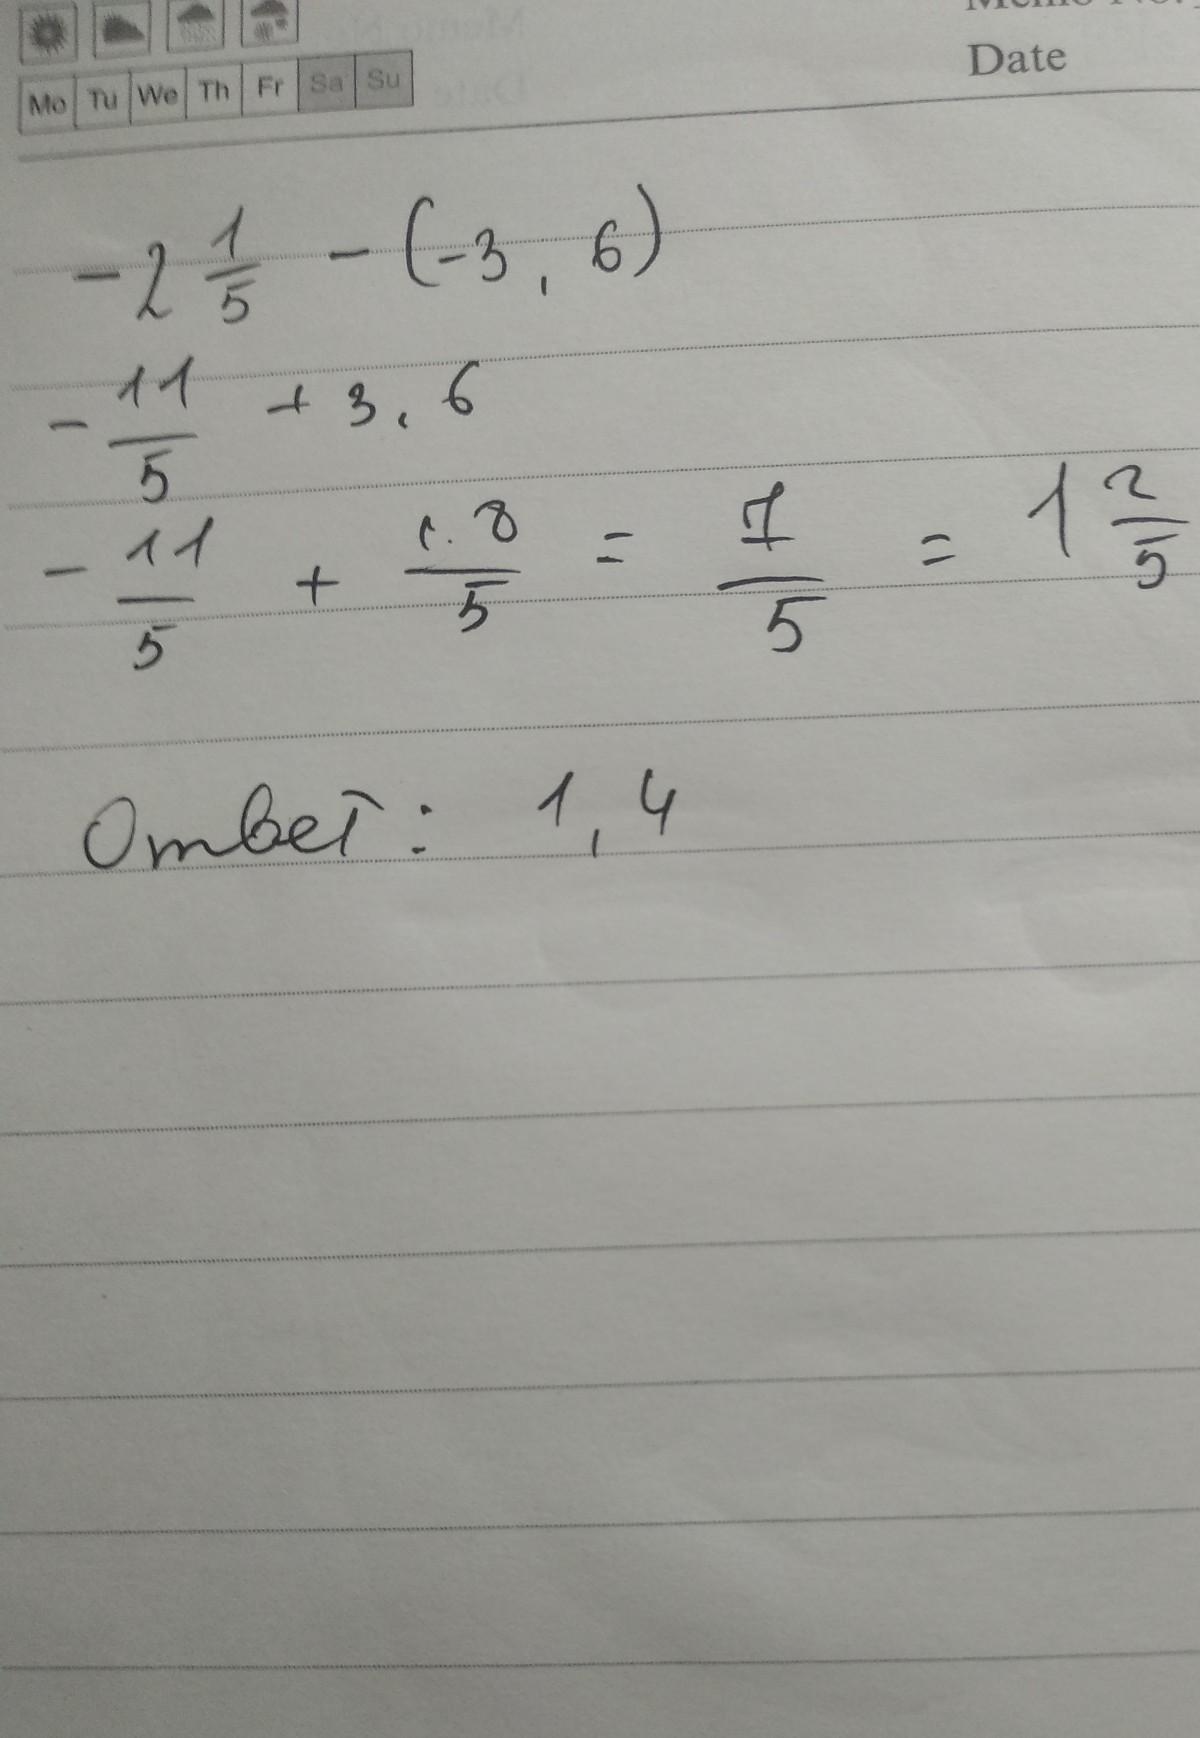 Mo Tu We Th Fr Sa Su
Date
-2 1/5 - (-3, 6)
- 11/5 + 3, 6
- 11/5 + 18/5 = 7/5 = 1 2/5
Ответ: 1, 4